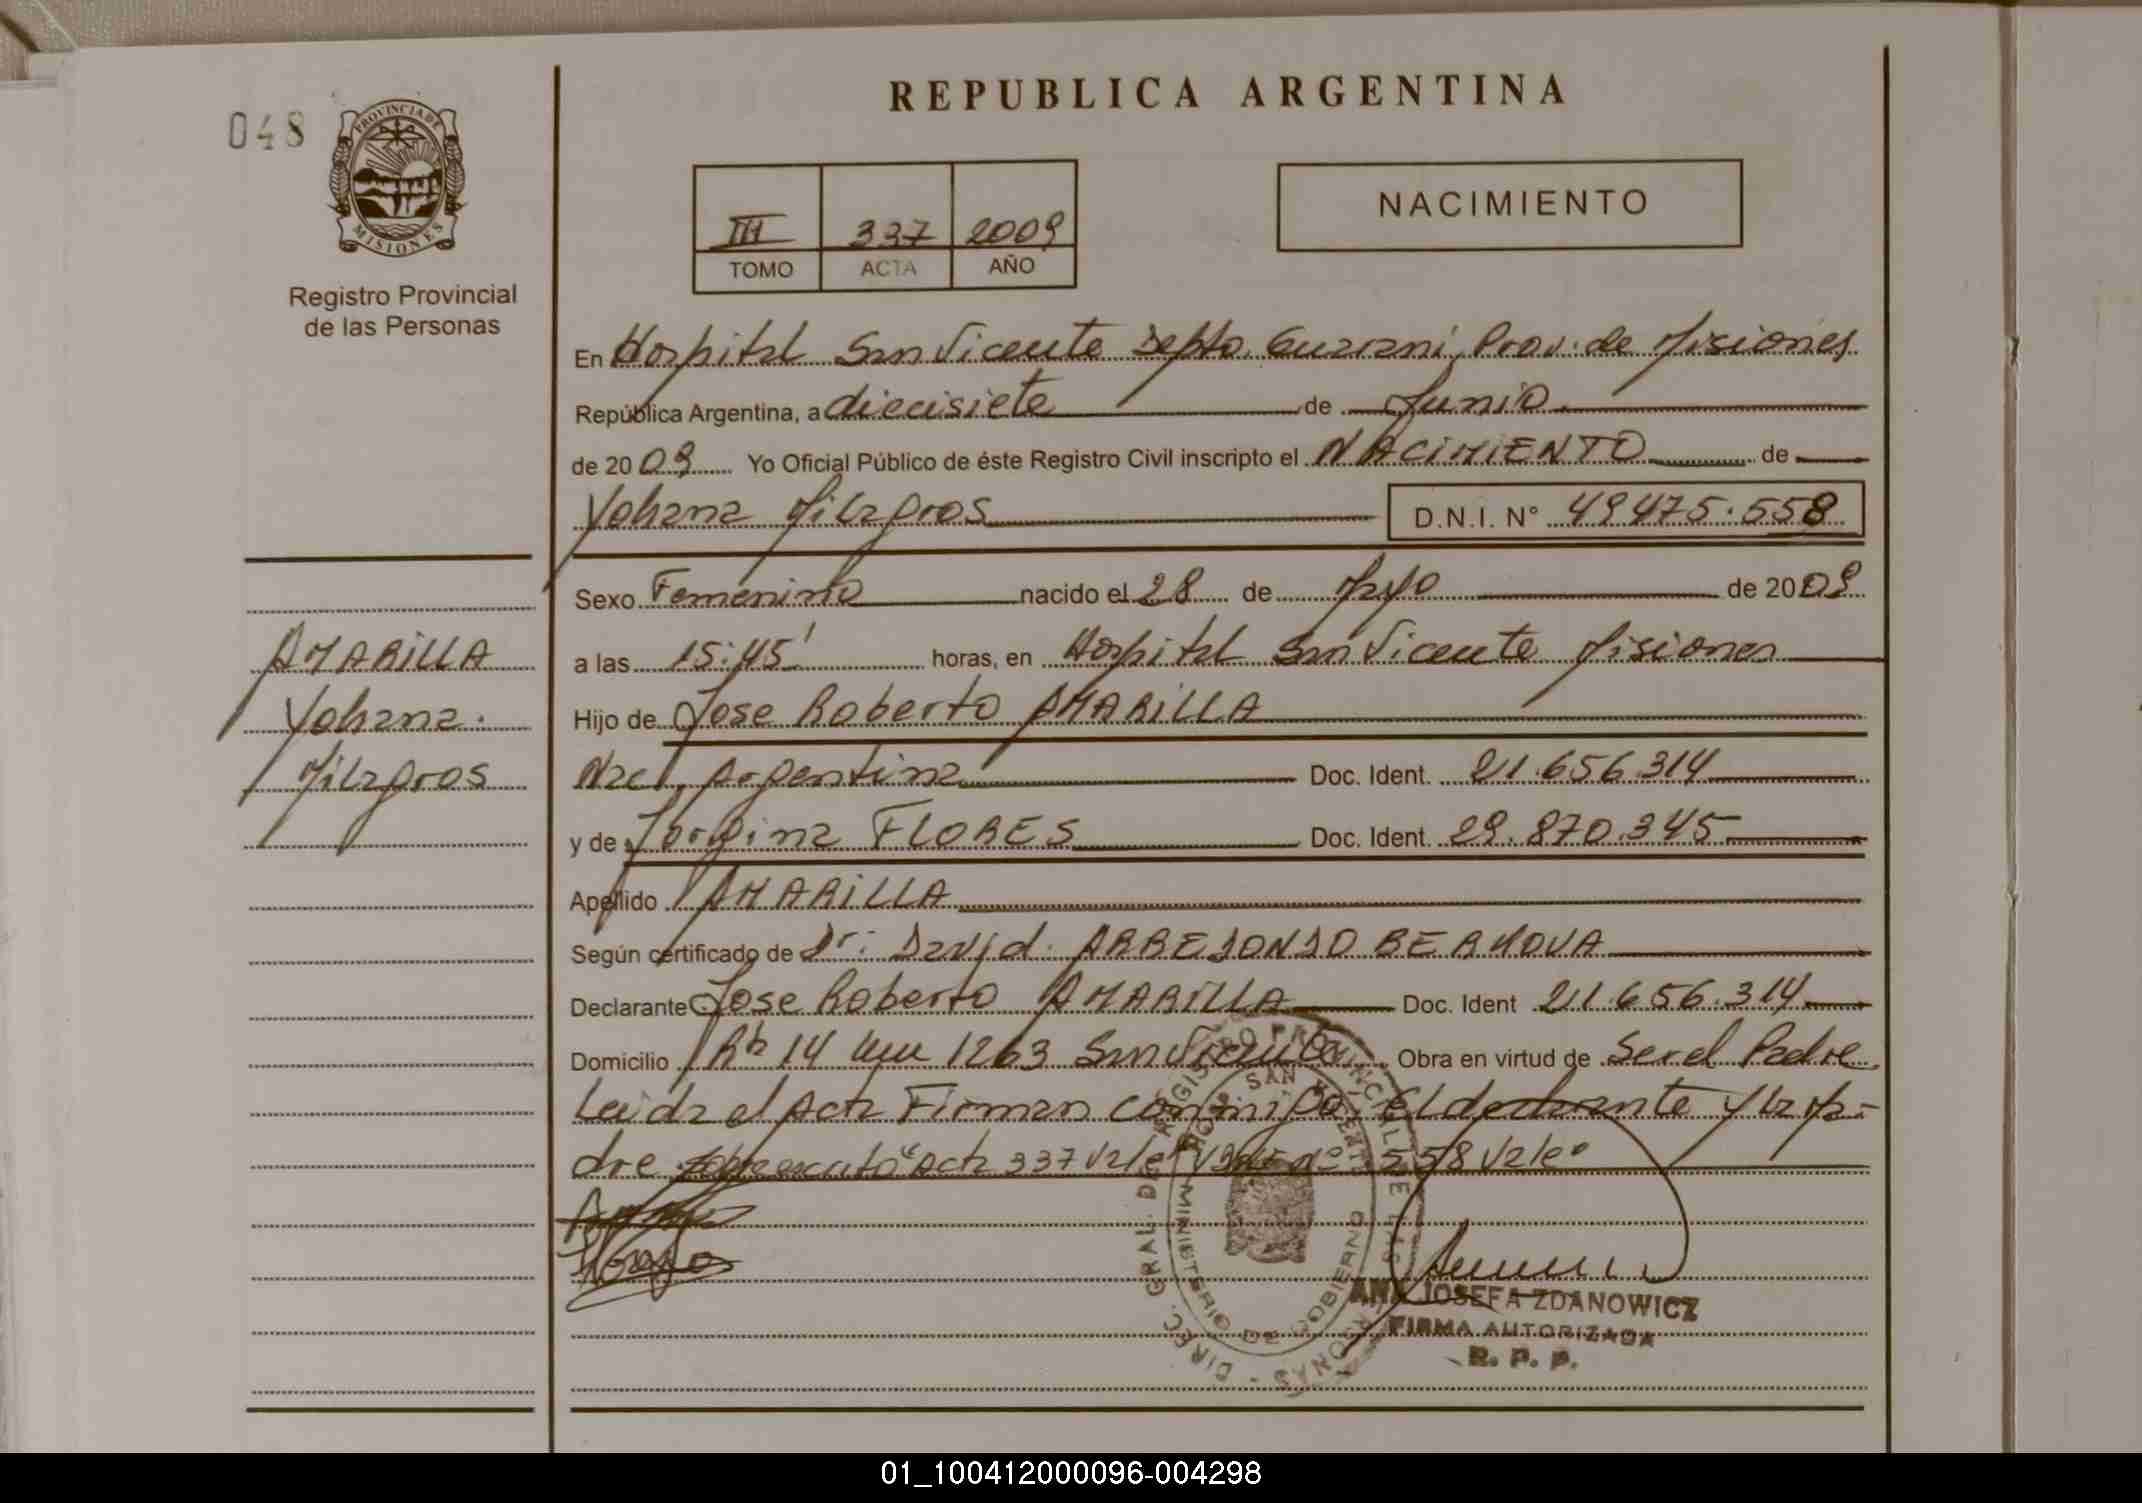 REPUBLICA ARGENTINA
048
PROVINCIA DE
MISIONES
Registro Provincial
de las Personas
III 337 2009
TOMO ACTA AÑO
NACIMIENTO
En Hospital San Vicente Depto. Guarani, Prov. de Misiones
República Argentina, a diecisiete de Junio
de 2009 Yo Oficial Público de éste Registro Civil inscripto el NACIMIENTO de
Yohana Milagros D.N.I. N° 49475.558
Sexo Femenino nacido el 28 de Mayo de 2009
a las 15:45' horas, en Hospital San Vicente Misiones
Hijo de Jose Roberto AMARILLA
Nac. Argentina Doc. Ident. 21.656.314
y de Jorgina FLORES Doc. Ident. 29.870.345
Apellido AMARILLA
Según certificado de Dr: David ARREDONDO BERNOVA
Declarante Jose Roberto AMARILLA Doc. Ident 21.656.314
Domicilio Rta 14 km 1263 San Vicente Obra en virtud de Ser el Padre
Leida el Acta Firman conmigo, El declarante y la Ma-
dre Acta 337 Vale 558 Vale
AMARILLA
Yohana
Milagros
DIREC. GRAL. DEL REGISTRO PROVINCIAL DE LAS PERSONAS
SAN VICENTE
MINISTERIO DE GOBIERNO
ANA JOSEFA ZDANOWICZ
FIRMA AUTORIZADA
R. P. P.
01_100412000096-004298